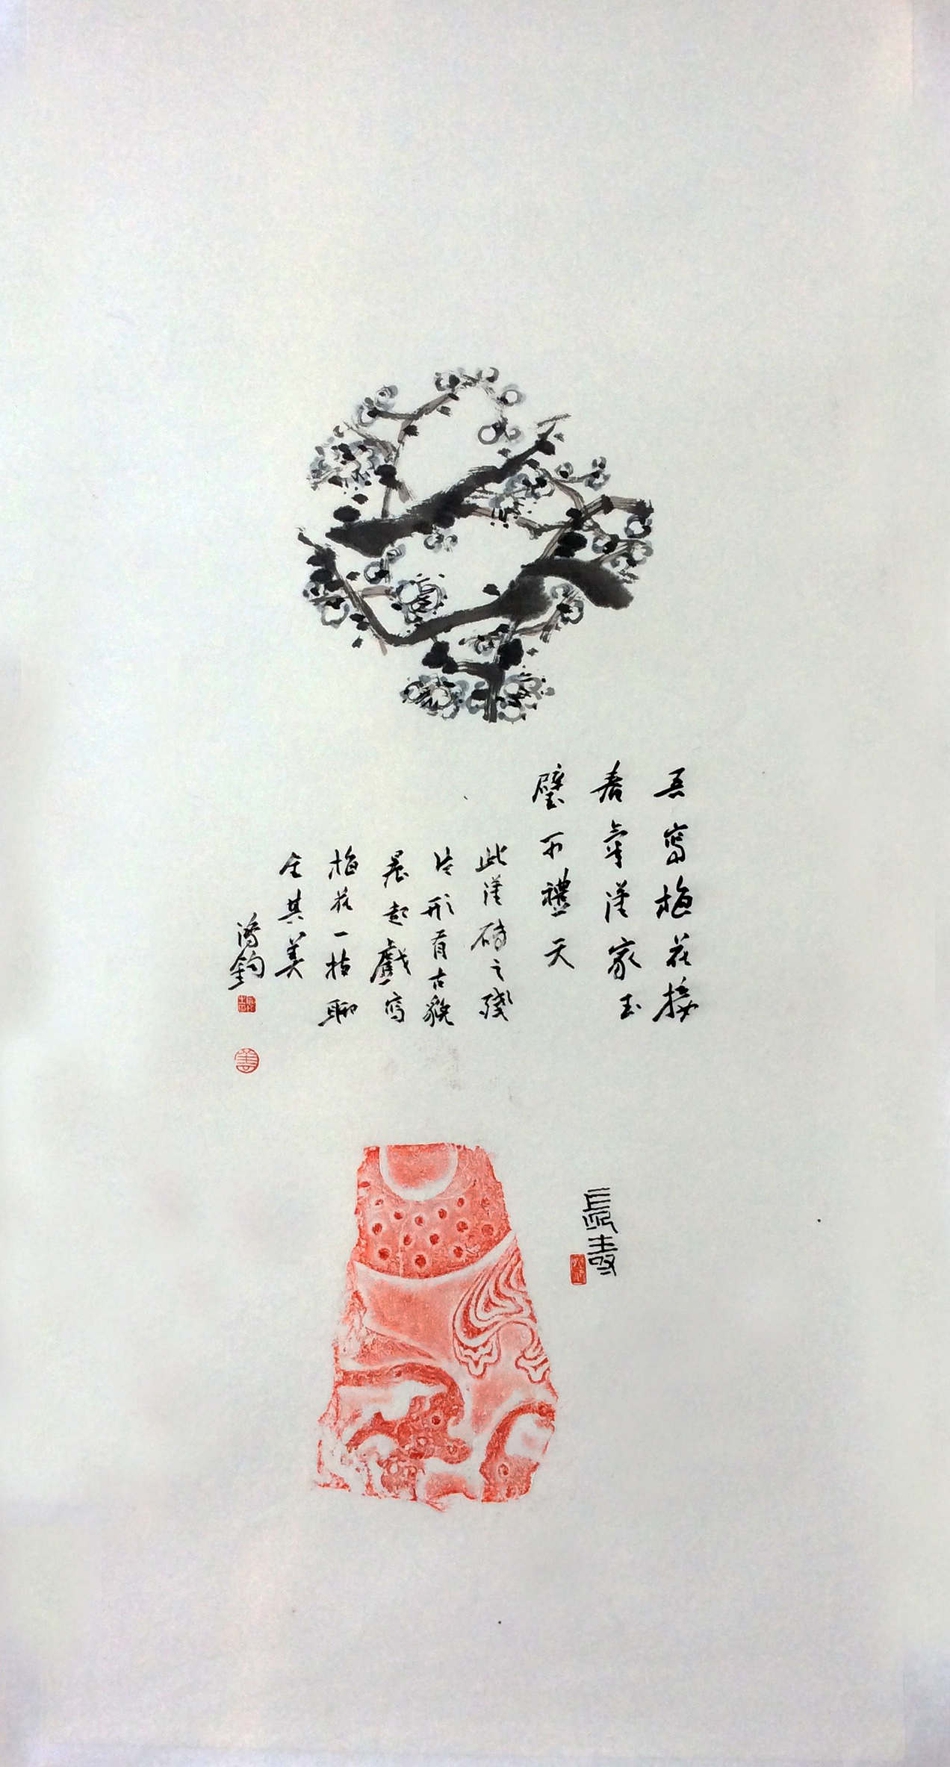 吾寫梅花接
春氣漢家玉
璧可禮天
此漢磚之殘
片形有古貌
晨起戲寫
梅花一枝聊
全其美
鴻鈞
長壽